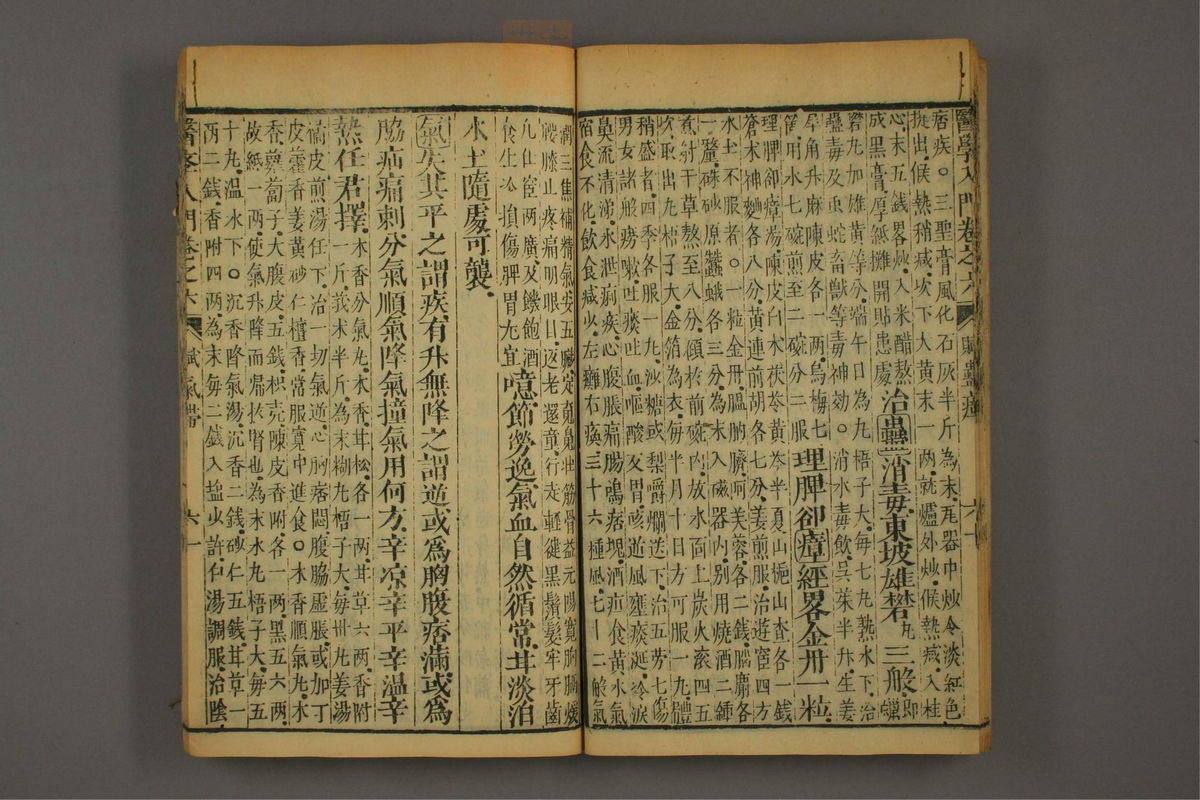 醫學入門卷之六 賦蠱瘴 六一
痞疾○三聖膏風化石灰半斤為末瓦器中炒令淡紅色
提出候熱稍减次下大黄末一两就爐外炒候熱减入桂
心末五錢畧炒入米醋熬
成黑膏厚紙攤開貼患處治蠱消毒東坡雄礬丸三般即蠟
礬丸加雄黄等分端午日為丸梧子大每七丸熟水下治
蠱毒及虫蛇畜獸等毒神効○消水毒飲吳茱半升生姜
犀角升麻陳皮各一两烏梅七
箇用水七碗煎至二碗分二服理脾卻瘴經畧金丹一粒
理脾卻瘴湯陳皮白术茯苓黄芩半夏山梔山查各一錢
蒼术神麯各八分黄連前胡各七分姜煎服治遊宦四方
水土不服者○一粒金丹膃肭臍阿芙蓉各二錢腦麝各
一釐硇砂原蠶蛾各三分為末入磁器内别用燒酒二鍾
煮射干草熬至八分傾於前碗内放水面上炭火滚四五
次取出九柿子大金箔為衣每半月十日方可服一九體
稍盛者四季各服一九沙糖或梨嚼爛送下治五劳七傷
男女諸般癆嗽吐痰吐血嘔酸反胃咳逆風壅痰涎冷淚
鼻流清涕水泄痢疾心腹脹痛腸鳴痞塊酒疸食黄水氣
宿食不化飲食减少左癱右瘓三十六種風七十二般氣
潤三焦補精氣安五臟定魂魄壯筋骨益元陽寬胸膈煖
腰膝止疼痛明眼目返老還童行走輕健黑鬚髮牢牙齒
凡仕宦两廣及饑飽酒
食生冷損傷脾胃尤宜噫節勞逸氣血自然循常茹淡泊
水土隨處可襲
氣失其平之謂疾有升無降之謂逆或為胸腹痞滿或為
脇疝痛刺分氣順氣降氣撞氣用何方辛凉辛平辛温辛
熱任君擇木香分氣丸木香甘松各一两甘草六两香附
一斤莪术半斤為末糊丸梧子大每卅丸姜湯
橘皮煎湯任下治一切氣逆心胸痞悶腹脇虛脹或加丁
皮藿香姜黄砂仁檀香常服寬中進食○木香順氣丸木
香蘿蔔子大腹皮五錢枳壳陳皮香附各一两黑丑六两
故紙一两使氣升降而帰於腎也為末水丸梧子大每五
十九温水下○沉香降氣湯沉香二錢砂仁五錢甘草一
两二錢香附四两為末每二錢入盐少許白湯調服治陰
醫學入門卷之六 賦氣滯 六一